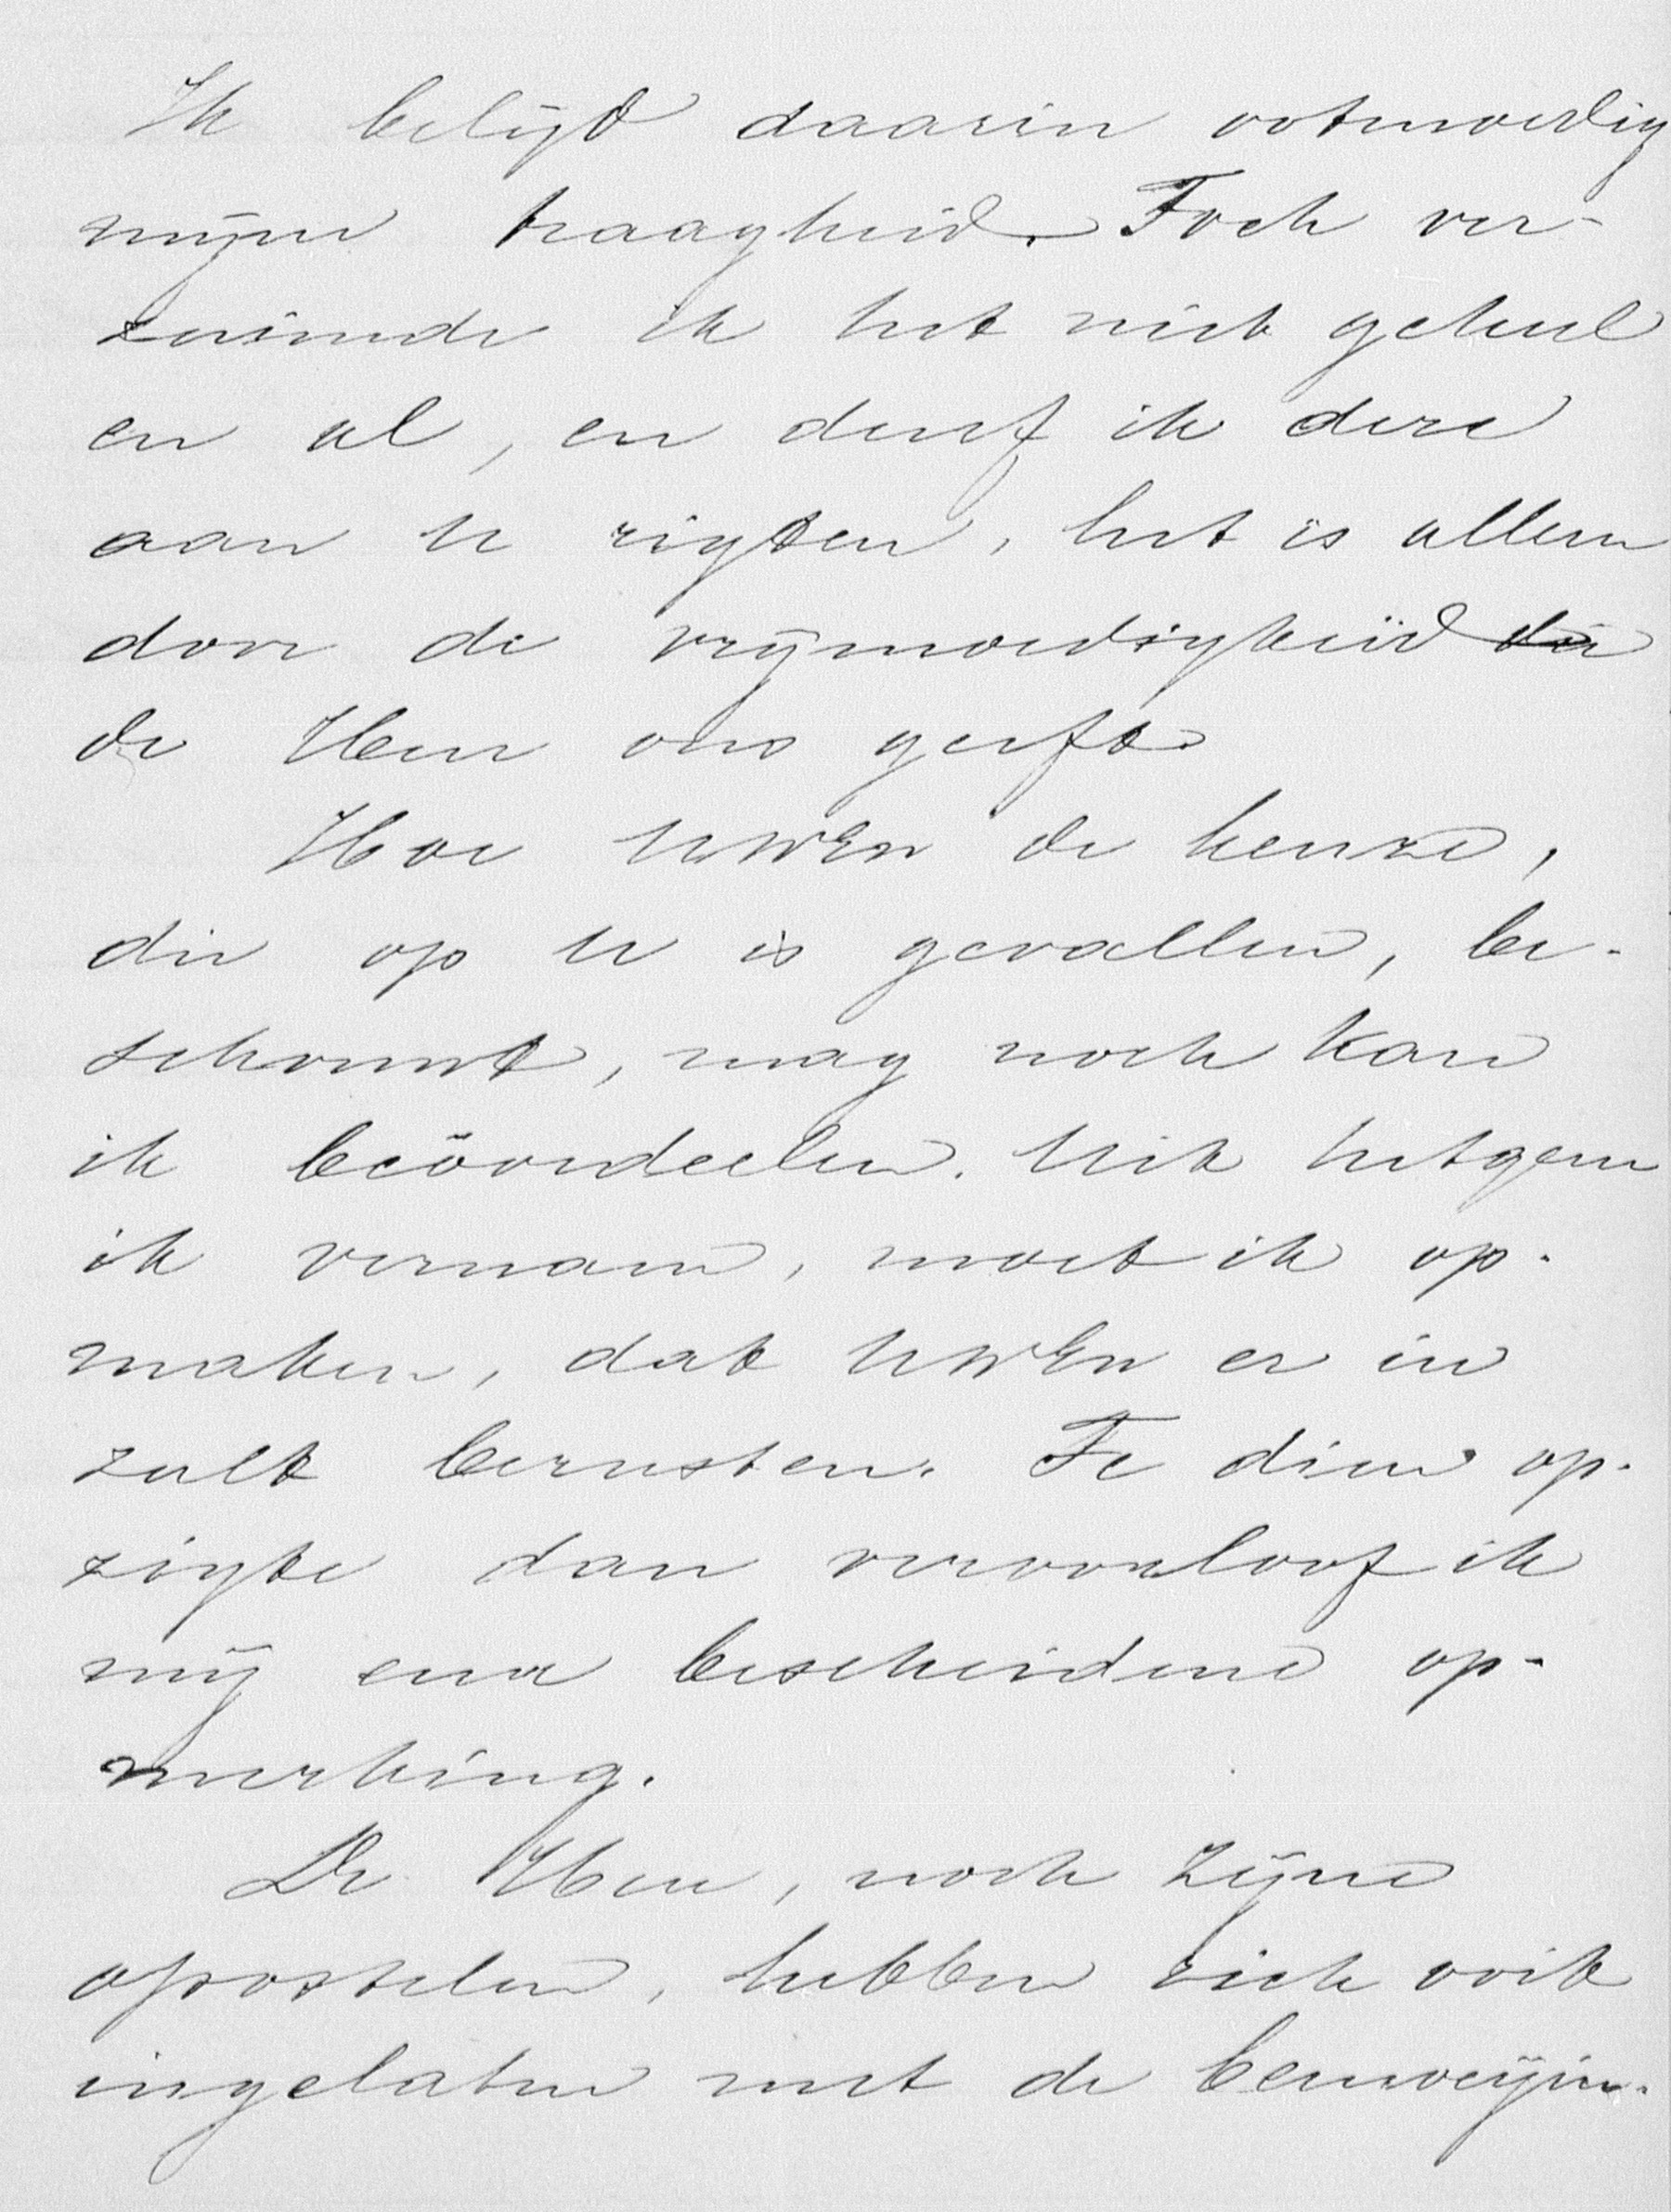 Ik belijd daarin ootmoedig
mijne traagheid. Toch ver-
zuimde ik het niet geheel
en al, en durf ik deze
aan U rigten, het is alleen
door de vrijmoedigheid die
de Heer ons geeft.
Hoe UWEw de keuze,
die op U is gevallen, be-
schouwt, mag noch kan
ik beöordeelen. Uit hetgeen
ik vernam, moet ik op-
maken, dat UWEw er in
zult berusten. Te dien op-
zigte dan veroorloof ik
mij eene bescheidene op-
merking.
De Heer, noch Zijne
apostelen, hebben zich ooit
ingelaten met de bemoeijin-